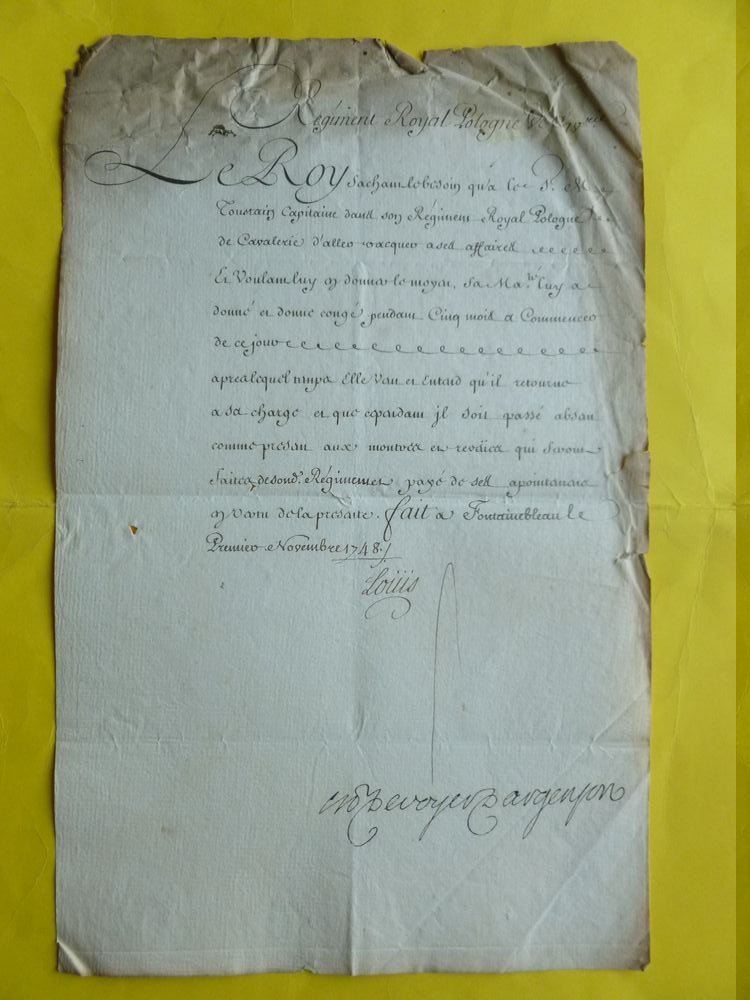 Régiment Royal Pologne
Le Roy Sachant le besoin qu'a le S. De
Toustain Capitaine dans son Régiment Royal Pologne
de Cavalerie d'aller vacquer a ses affaires
Et Voulant luy en donner le moyen, Sa Ma.té luy a
donné et donne congé pendant Cinq mois a Commencer
de ce jour
apres lequel temps Elle Veut et Entend qu'il retourne
a sa charge et que cependant il soit passé absent
comme present aux montres et reveües qui seront
faites de sond. Régiment et payé de ses apointemens
en vertu de la presente. fait a Fontainebleau le
Premier Novembre 1748./
Louis
De voyer D'argenson